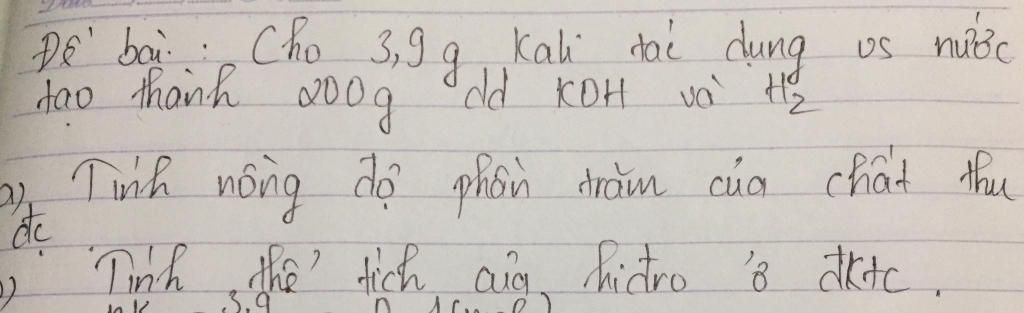 Đề bài: Cho 3,9 g Kali tác dụng vs nước
tạo thành 200g dd KOH và H2
a) Tính nồng độ phần trăm của chất thu
đc
) Tính thể tích của hidro ở đktc.
nK 3,9